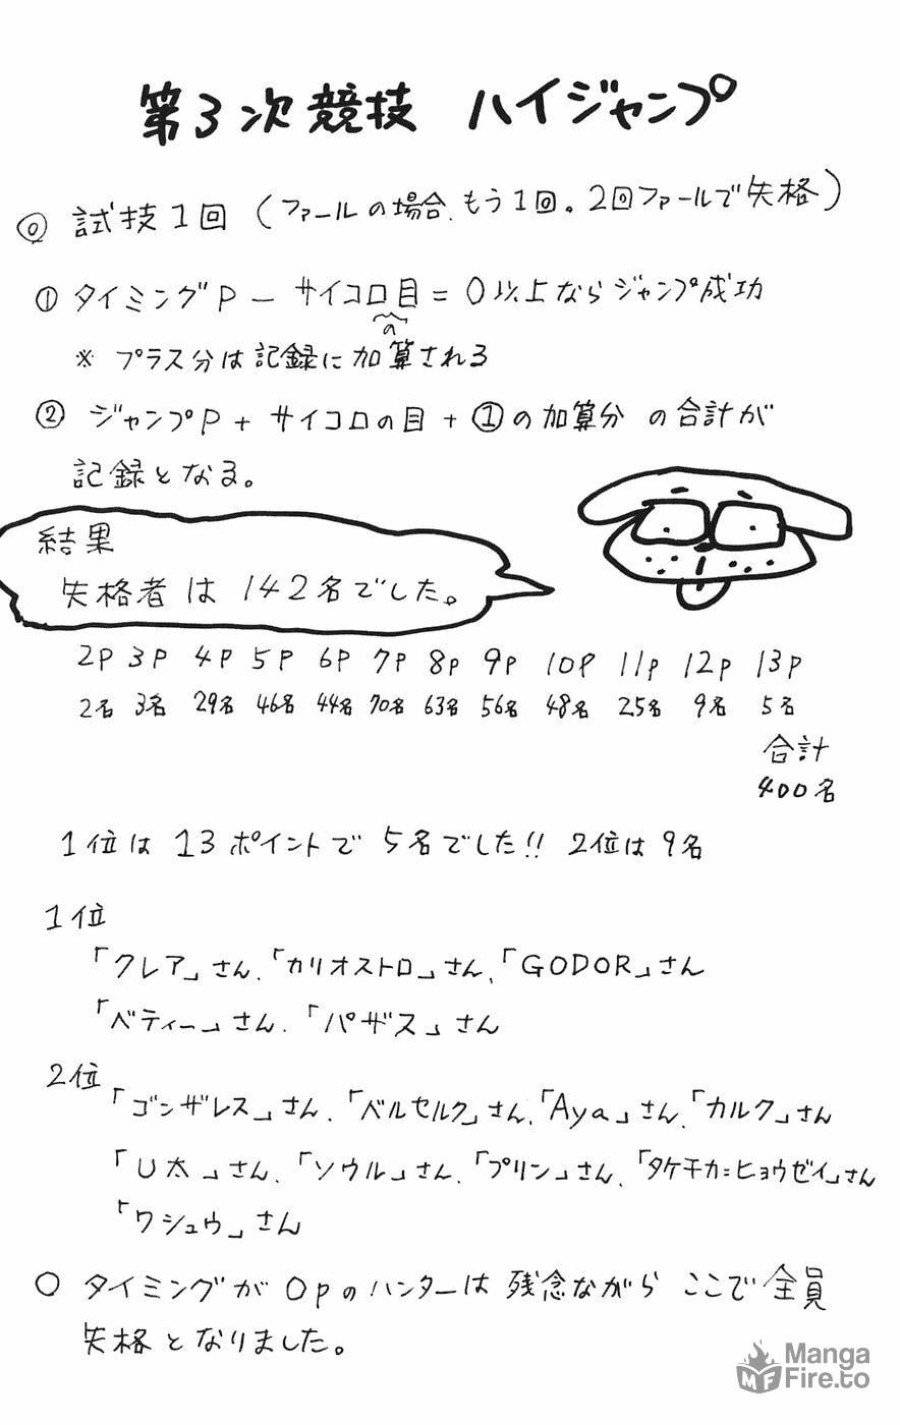 第3次競技 ハイジャンプ
◎ 試技1回 (ファールの場合、もう1回。2回ファールで失格)
① タイミングP − サイコロ目 = 0以上ならジャンプ成功
の
※ プラス分は記録に加算される
② ジャンプP + サイコロの目 + ①の加算分 の合計が
記録となる。
結果
失格者は 142名でした。
2P 3P 4P 5P 6P 7P 8P 9P 10P 11P 12P 13P
2名 3名 29名 46名 44名 70名 63名 56名 48名 25名 9名 5名
合計
400名
1位は 13ポイントで 5名でした!! 2位は9名
1位
「クレア」さん、「カリオストロ」さん、「GODOR」さん
「ベティー」さん、「パザス」さん
2位
「ゴンザレス」さん、「ベルセルク」さん、「Aya」さん、「カルク」さん
「U太」さん、「ソウル」さん、「プリン」さん、「タケチカ=ヒョウゼイ」さん
「ワシュウ」さん
○ タイミングが0pのハンターは 残念ながら ここで全員
失格となりました。
Manga
MF Fire.to